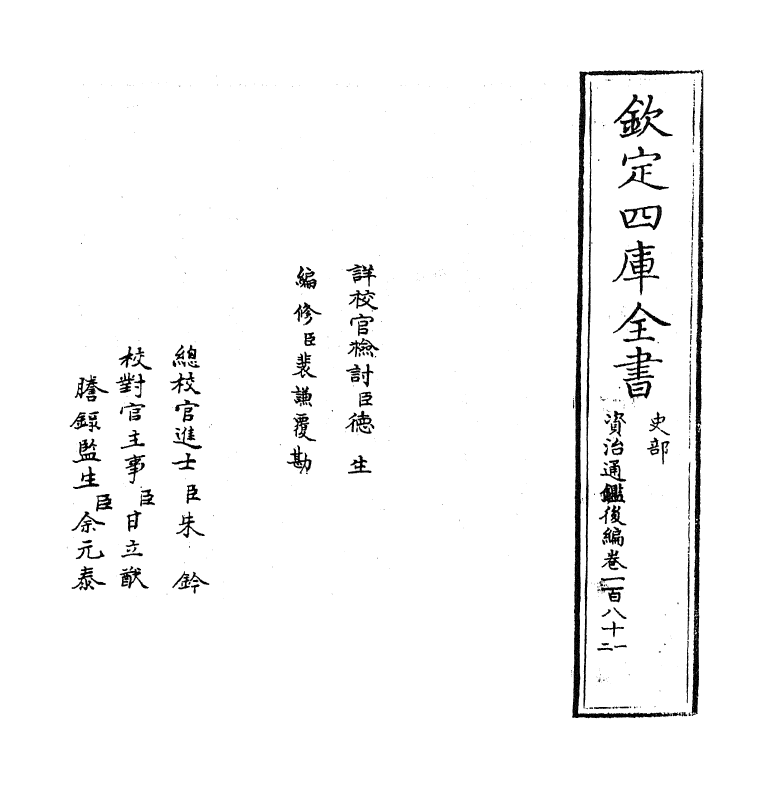 欽定四庫全書
史部
資治通鑑後編卷一百八十一二
詳校官檢討臣德生
編修臣裴謙覆勘
總校官進士臣朱鈐
校對官主事臣甘立猷
謄錄監生臣余元泰